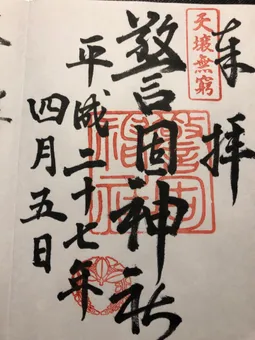 奉拝
天壌無窮
警固神社
平成二十七年
四月五日